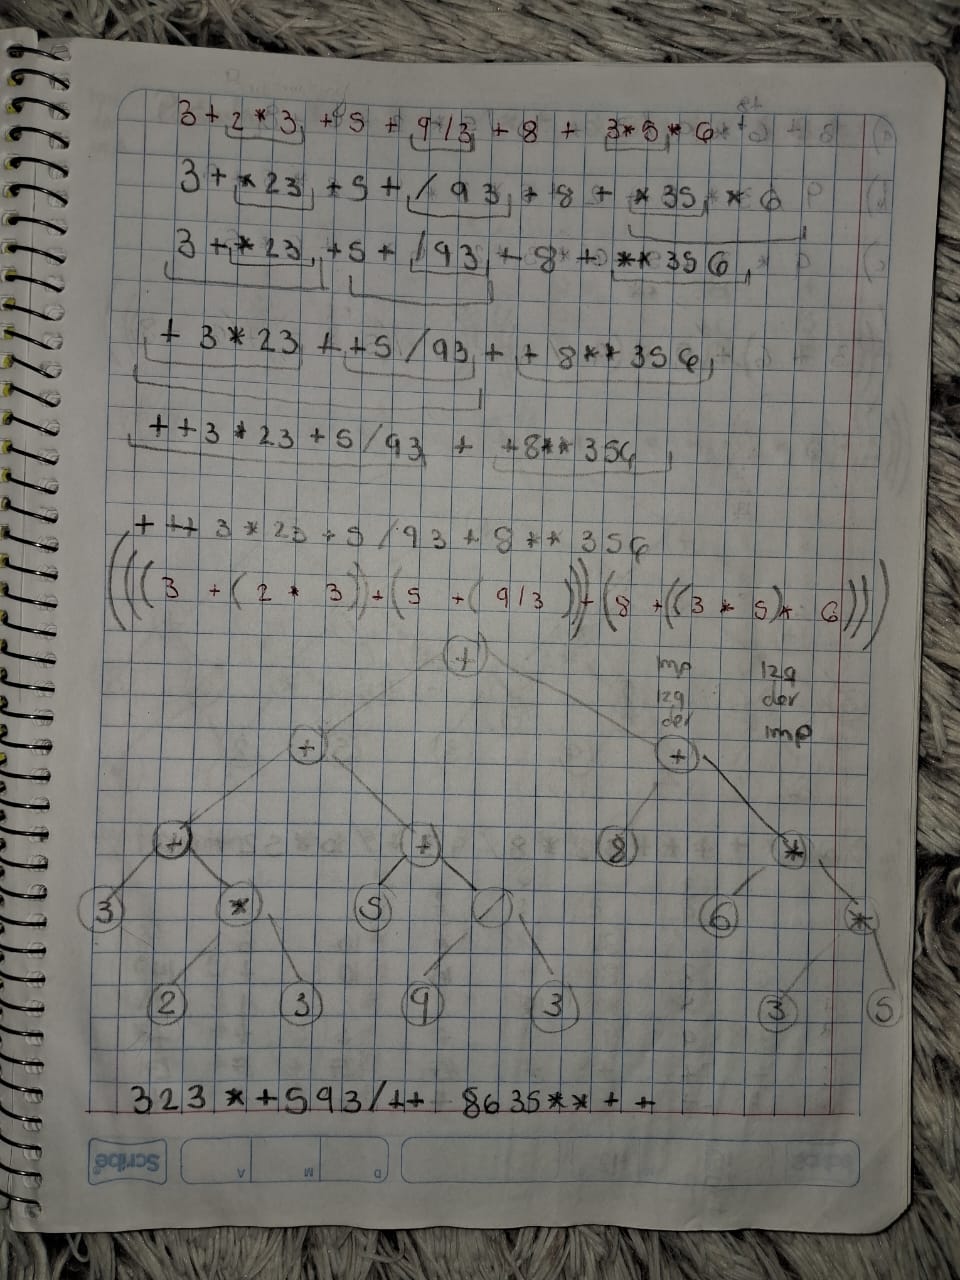 3 + 2 * 3 + 5 + 9 / 3 + 8 + 3 * 5 * 6
3 + * 2 3 + 5 + / 9 3 + 8 + * 3 5 * 6
3 + * 2 3 + 5 + / 9 3 + 8 + * * 3 5 6
+ 3 * 2 3 + + 5 / 9 3 + + 8 * * 3 5 6
+ + 3 * 2 3 + 5 / 9 3 + + 8 * * 3 5 6
+ + + 3 * 2 3 + 5 / 9 3 + 8 * * 3 5 6
(((3 + (2 * 3)) + (5 + (9 / 3))) + (8 + ((3 * 5) * 6)))
+
imp izq
izq der
der imp
+ +
+ + 8 *
3 * 5 / 6 *
2 3 9 3 3 5
3 2 3 * + 5 9 3 / + + 8 6 3 5 * * + +
Scribe A M D